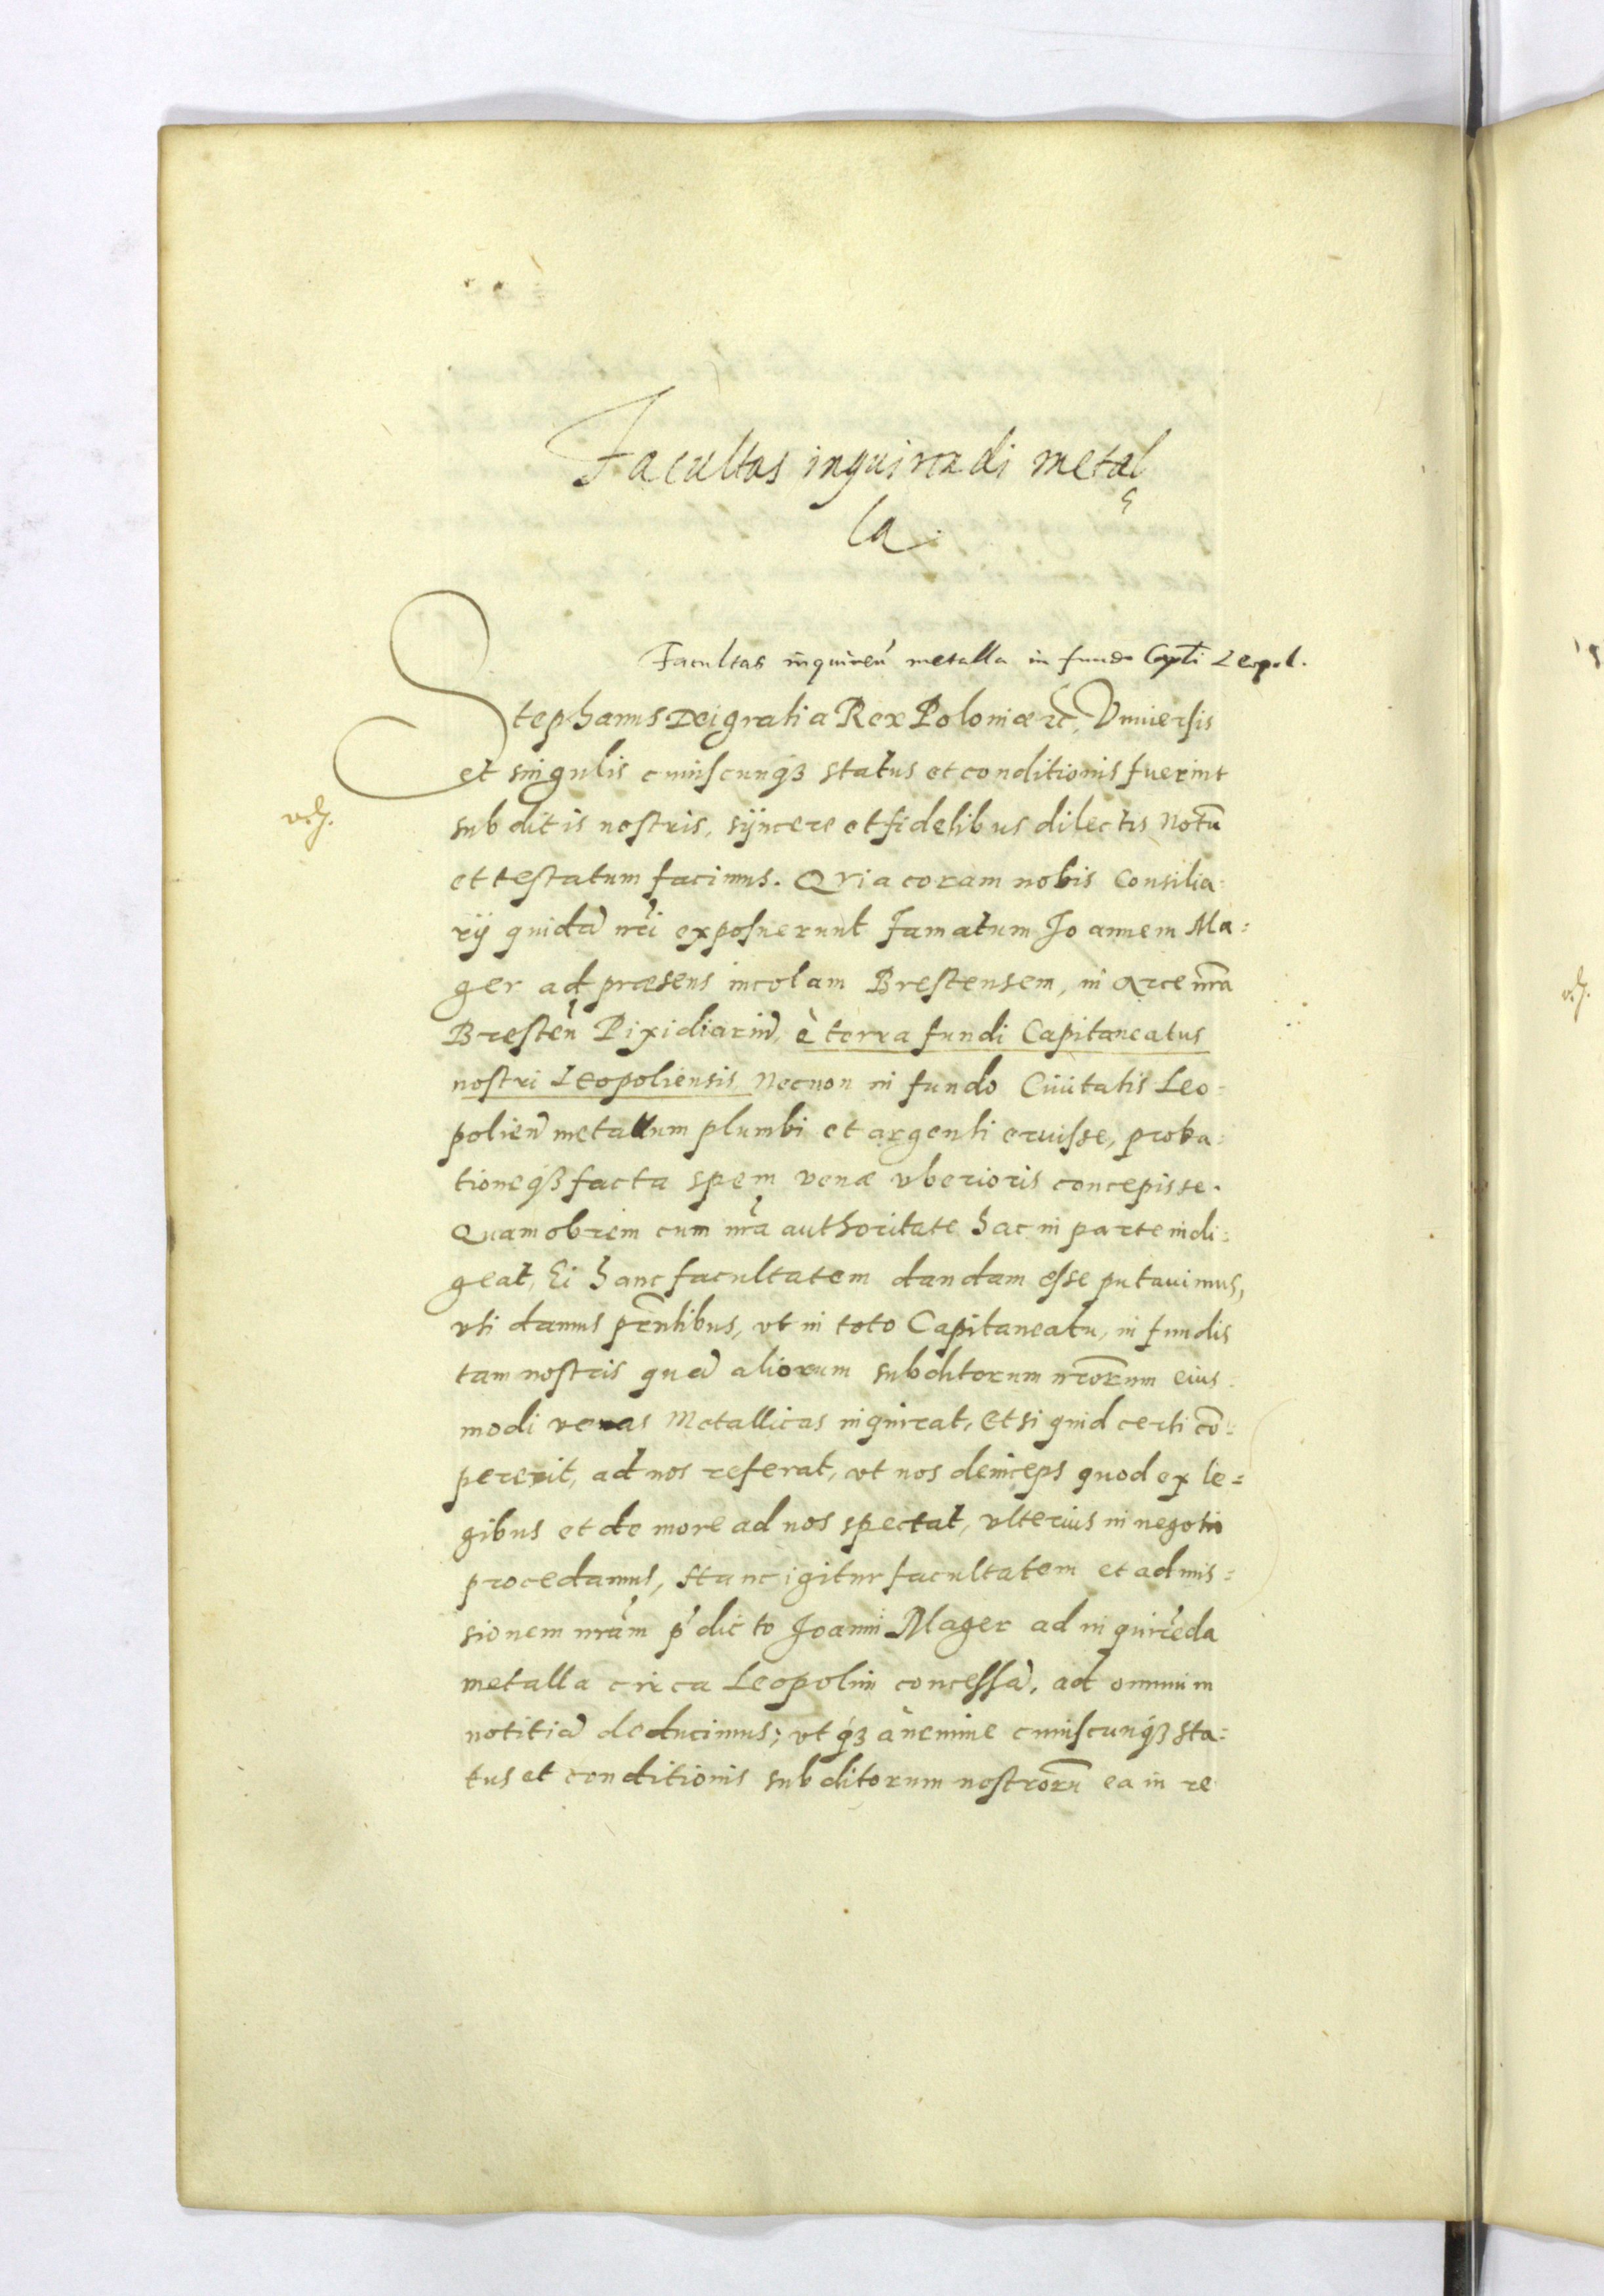 Facultas inquirendi metal
la.
Facultas inquiren̄ metalla in fundo Capti Leopol.
Stephanus Dei gratia Rex Poloniæ etc̄, Vniuersis
et singulis cuiuscunqȝ status et conditionis fuerint
subditis nostris, syncere et fidelibus dilectis Notū
et testatum facimus. Qvia coram nobis Consilia:
rij quidā nri exposuerunt famatum Joannem Ma:
ger ad præsens incolam Brestensem, in Arce nra
Bresteñ Pixidiariū, è terra fundi Capitaneatus
nostri Leopoliensis Necnon in fundo Ciuitatis Leo:
polieñ metallum plumbi et argenti eruisse, proba:
tioneqȝ facta spem venæ vberioris concepisse.
Quamobrem cum nra authoritate hac in parte indi:
geat, Ei hanc facultatem dandam esse putauimus,
vti damus pñtibus, vt in toto Capitaneatu, in fundis
tam nostris quā aliorum subditorum nrorum eius:
modi venas Metallicas inquirat, Et si quid certi cō:
pererit, ad nos referat, vt nos deinceps quod ex le=
gibus et de more ad nos spectat, vlterius in negotio
procedamus, Hanc igitur facultatem et admis:
sionem nram p̄dicto Joanni Mager ad inquirēda
metalla circa Leopolim concessā, ad omnium
notitiā deducimus; vt qȝ a nemine cuiuscunqȝ sta:
tus et conditionis subditorum nostrorū ea in re